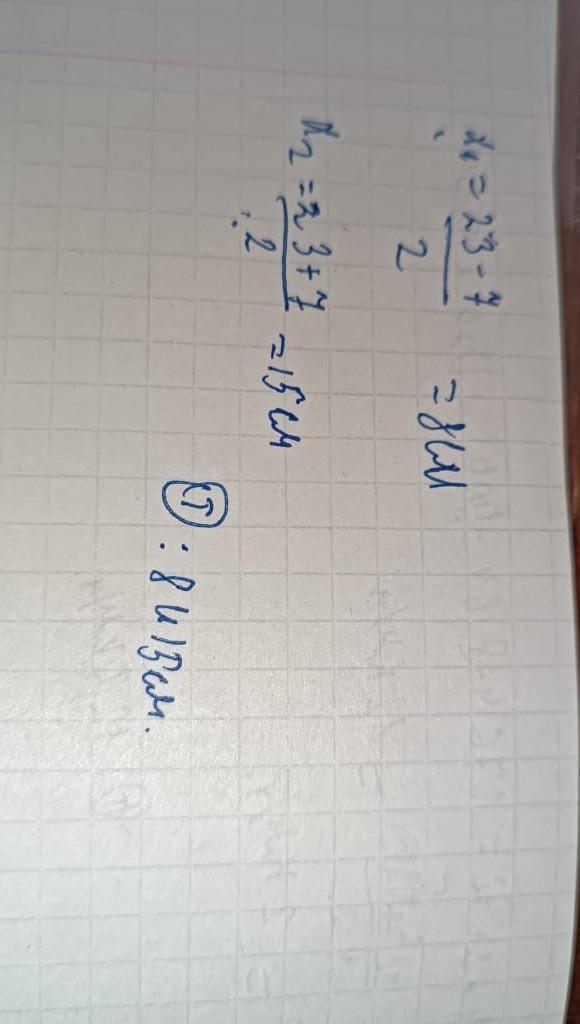 x₁ = (23 - 7)/2 = 8 см
x₂ = (23 + 7)/2 = 15 см
: 8 и 15 см.